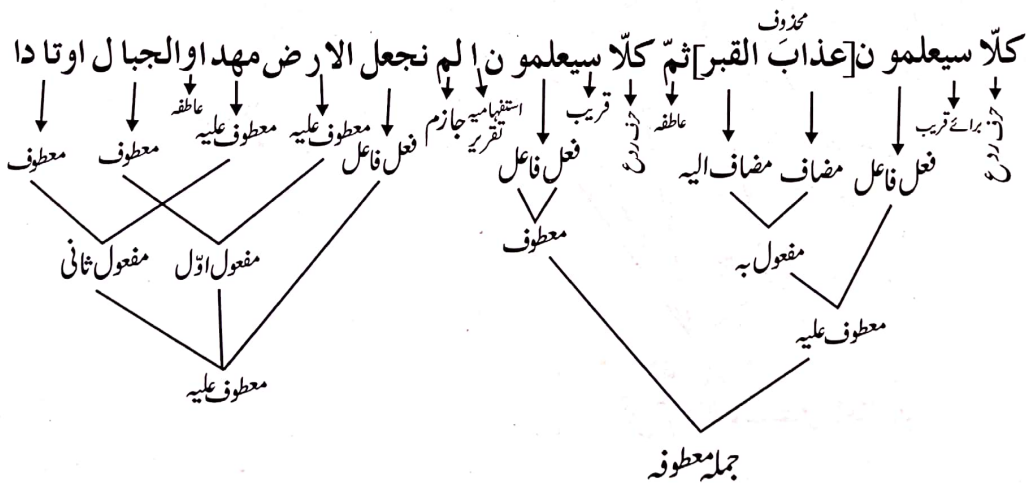 محذوف
كلّا سيعلمو ن[عذابَ القبر]ثمّ كلّا سيعلمو ن ا لم نجعل الا ر ض مهدا و الجبا ل او تا دا
حرف روع برائے قریب فعل فاعل مضاف مضاف الیہ عاطفہ حرف روع قریب فعل فاعل استفہامیہ تقریر جازم فعل فاعل معطوف علیہ معطوف علیہ عاطفہ معطوف معطوف
مفعول بہ معطوف مفعول اوّل مفعول ثانی
معطوف علیہ معطوف علیہ
جملہ معطوفہ